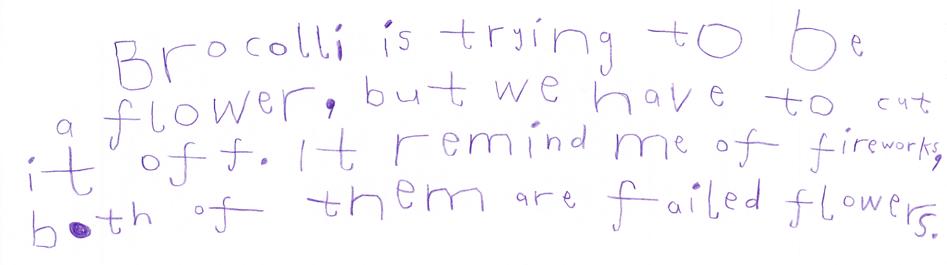 Brocolli is trying to be
a flower, but we have to cut
it off. It remind me of fireworks,
both of them are failed flowers.